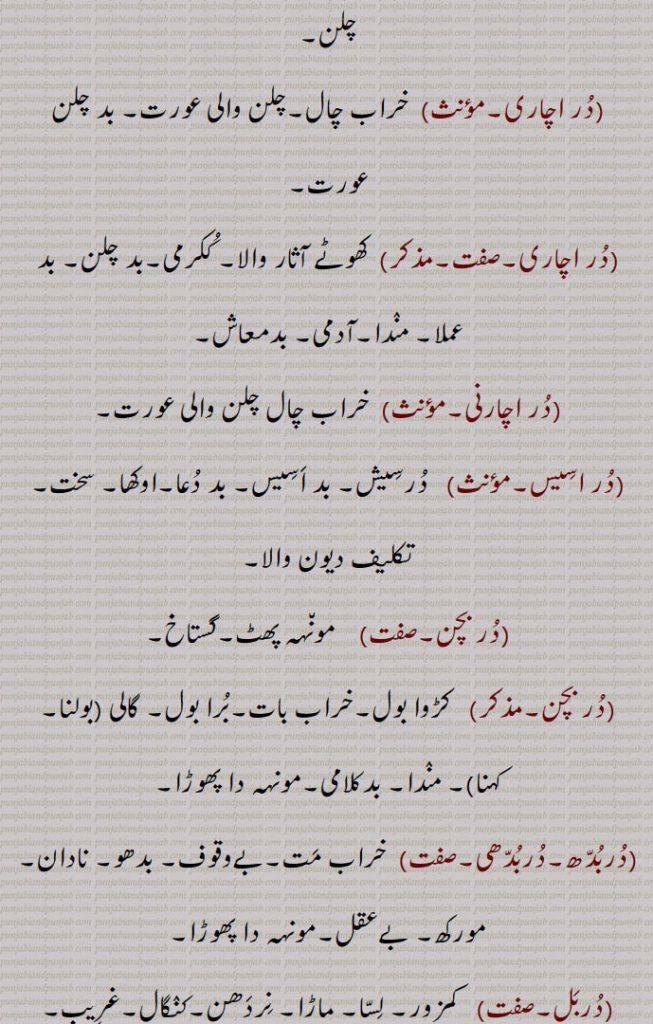 چلن۔
(دُر اچاری۔مؤنث) خراب چال۔چلن والی عورت۔ بد چلن
عورت۔
(دُر اچاری۔صفت۔مذکر) کھوٹے آثار والا۔ کُکرمی۔بد چلن۔ بد
عملا۔ منْدا۔آدمی۔ بدمعاش۔
(دُر اچارنی۔مؤنث) خراب چال چلن والی عورت۔
(دُر اسِیس۔مؤنث) دُرسِیش۔ بد اَسِیس۔ بد دُعا۔اوکھا۔ سخت۔
تکلیف دیون والا۔
(دُر بچن۔صفت) مونہّہ پھٹ۔گستاخ۔
(دُر بچن۔مذکر) کڑوا بول۔خراب بات۔بُرا بول۔ گالی (بولنا۔
کہنا)۔ منْدا۔ بدکلامی۔مونہہ دا پھوڑا۔
(دُربُدّھ۔دُربُدّھی۔صفت) خراب مَت۔بےوقوف۔ بدھو۔ نادان۔
مورکھ۔ بےعقل۔مونہہ دا پھوڑا۔
(دُربَل۔صفت) کمزور۔ لِسّا۔ ماڑا۔ نِردَھن۔کنْگال۔غرِیب۔